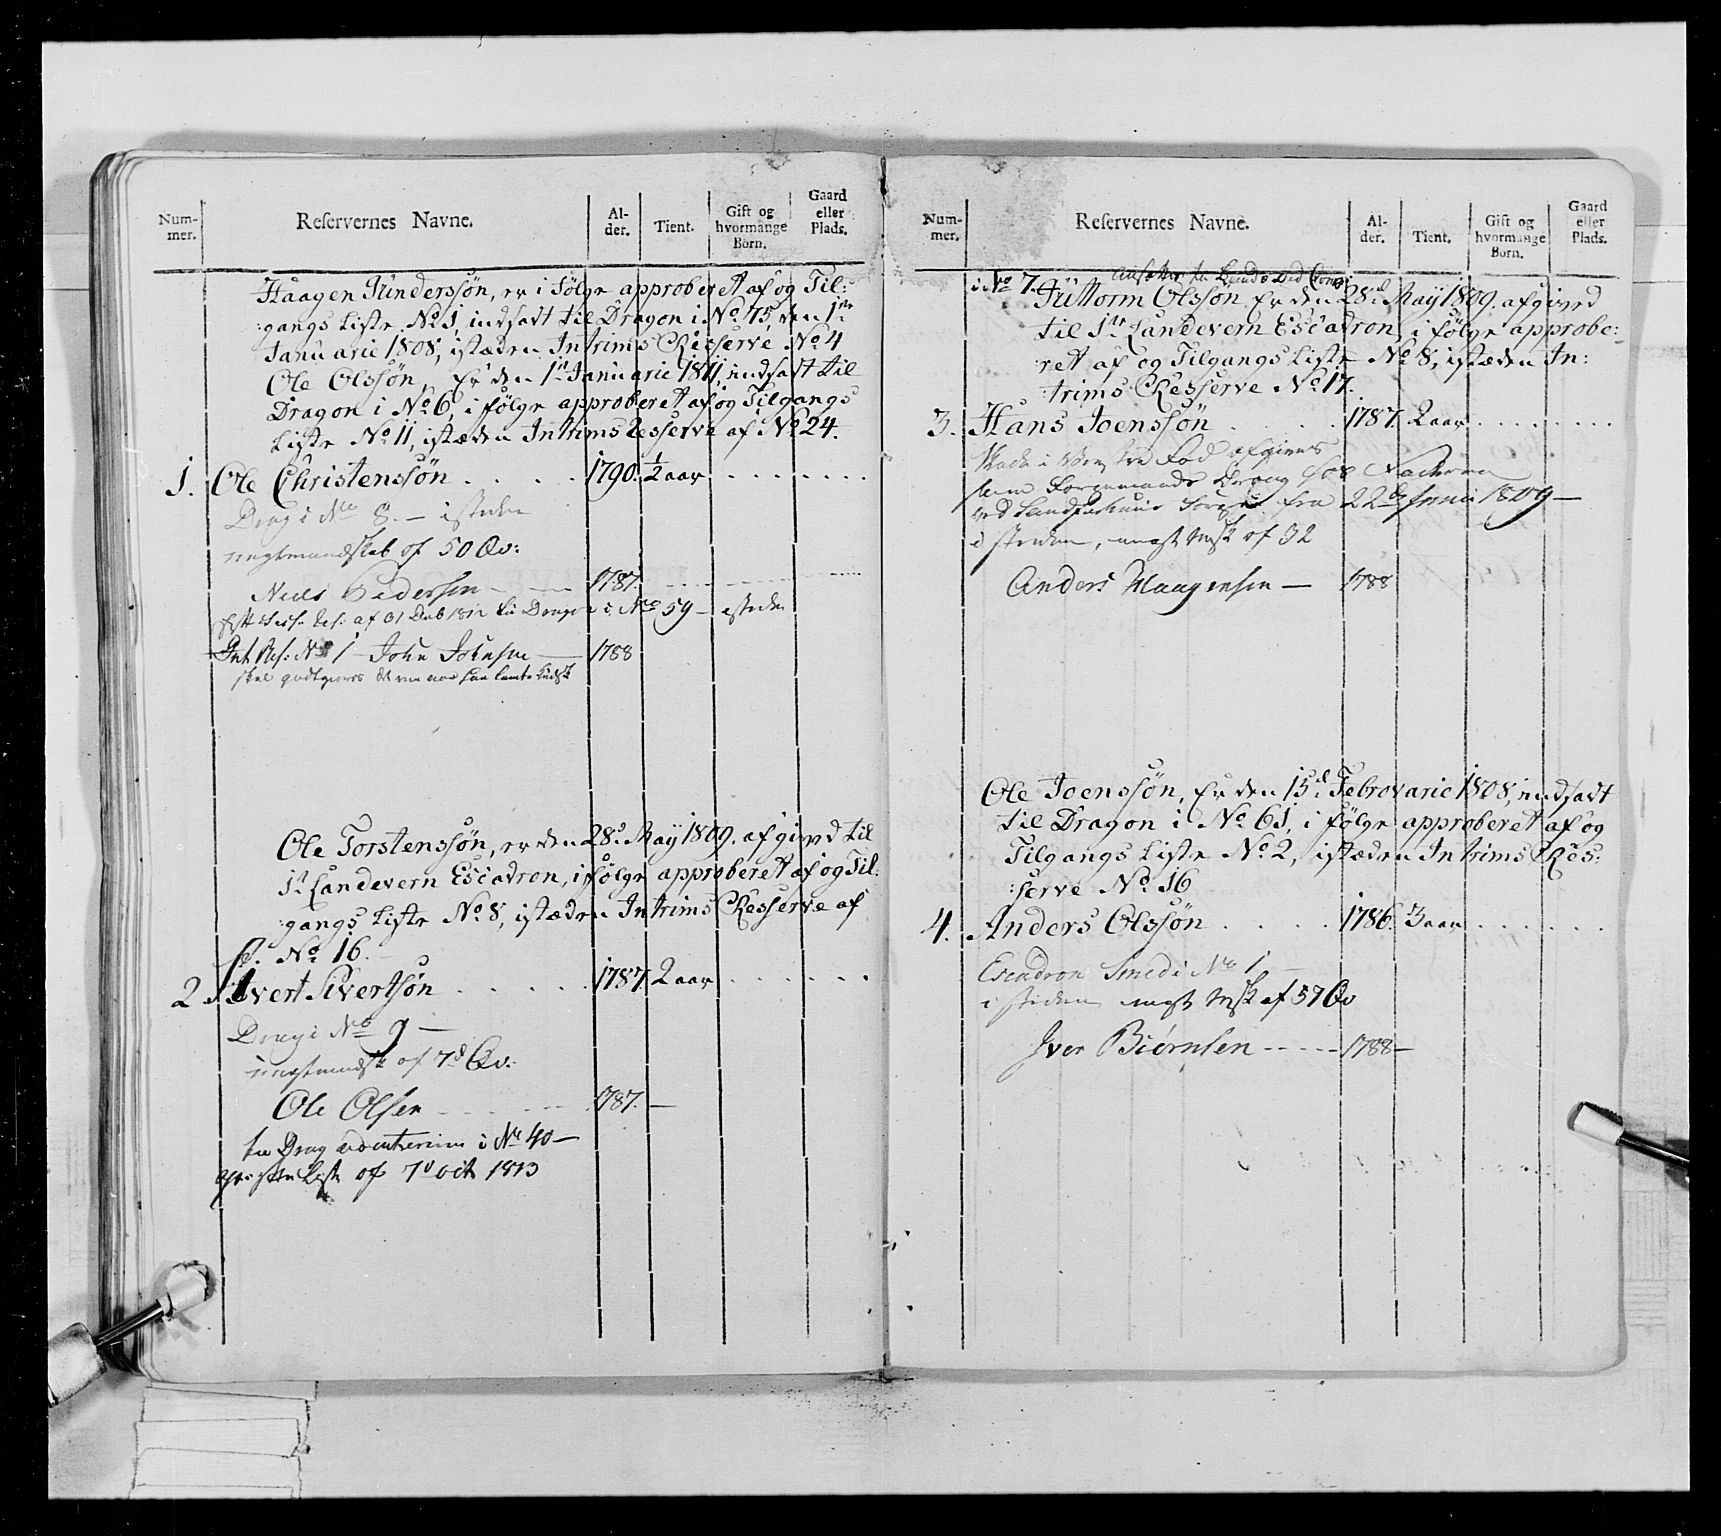 Num-
mer.
Reservernes Navne.
Al-
der.
Tient.
Gift og
hvormange
Börn.
Gaard
eller
Plads.
Haagen Gunderssön, er i fölge approberet af og Til:
:gangs Liste No 1, indsadt til Dragon i No 75, den 1te
Januarie 1808, istæden Intrims Resserve No 4
Ole Olssön, Er den 1te Januarie 1811, indsadt til
Dragon i No 6, i fölge approberet af og Tilgangs
Liste No 11, istæden Intrims Resserve af No 24.
1. Ole Christenssön 1790. 1/2 aar
Drag i No 8. - isteden
ungtmandskab af 50 Qv:
Niels Pedersen 1787.
af 31 Dcb 1812 til Dragon i No 59 - isteden
Int Res: No 1 John Johnsen 1788
skal godtgiøres
Ole Torstenssön, er den 28de May 1809. afgived til
1te Landevern Escadron, i fölge approberet af og Til:
:gangs Liste No 8, istæden Intrims Resserve af
No 16.
2. Ivert Sivertsön 1787. 2 aar
Drag i No 9 -
ungtmndsk af 7d Qv:
Ole Olsen 1787. -
til Drag i No 40 -
Liste af 7d Oct 1813
Num-
mer.
Reservernes Navne.
Al-
der.
Tient.
Gift og
hvormange
Börn.
Gaard
eller
Plads.
i No 7.
Guttorm Olssön, Er den 28de May 1809. afgived
til 1te Landevern Escadron, i fölge approbe:
:ret af og Tilgangs Liste No 8, istæden In:
:trims Resserve No 17.
3. Hans Joenssön 1787. 2 aar
Skade i venstre Fod afgives
som
ved fra 22de Junii 1809 -
i steden, ungt Msk af 32
Anders Haagensen - 1788
Ole Joenssön, Er den 15de Febrovarie 1808, indsadt
til Dragon i No 61, i fölge approberet af og
Tilgangs Liste No 2, istæden Intrims Res:
:serve No 16
4. Anders Olssön 1786. 3 aar
Escadron Smed i No 1 -
i steden ungt Msk af 57 Qv
Iver Biørnsen 1788 -